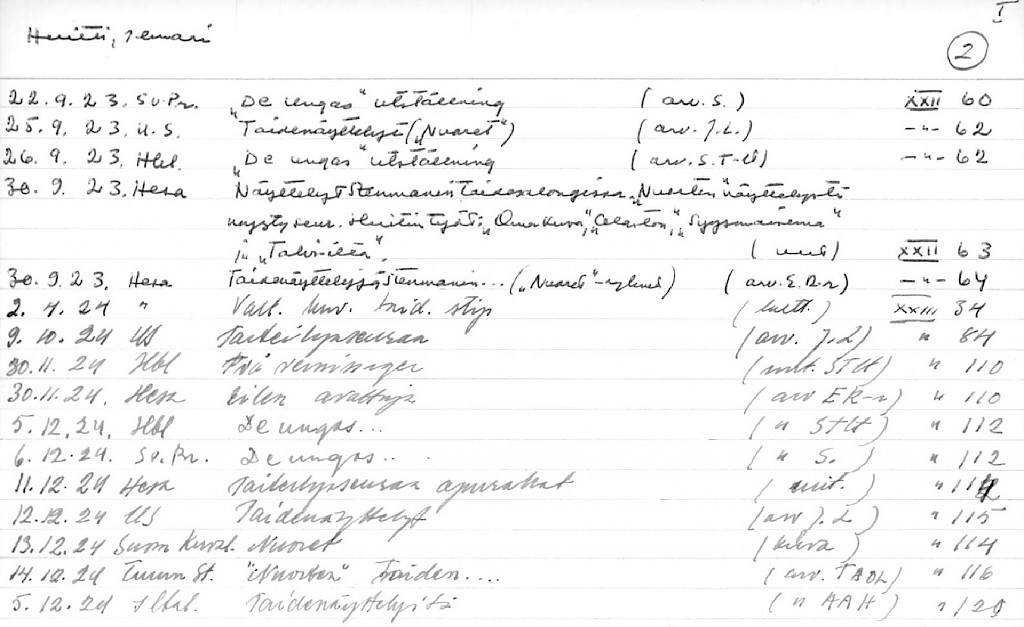 I
Huitti, Ilmari
2
22.9.23. Sv.Pr. "De ungas" utställning (arv. S.) XXII 60
25.9.23. U.S. Taidenäyttelyt ("Nuoret") (arv. J.L.) -"- 62
26.9.23. Hbl. "De ungas" utställning (arv. S.T-U) -"- 62
30.9.23. Hesa Näyttelyt Stenmanin taidesalongissa. "Nuorten" näyttelystä
näyt. seur. Huitin työt: "Omakuva",
ja "Talvi-ilta". (uut) XXII 63
30.9.23. Hesa Taidenäyttelyjä Stenmanin... ("Nuoret"-ryhmä) (arv. E.R-r) -"- 64
2.4.24 " Valt. kuv. taid. stip (uutt.) XXIII 34
9.10.24 US Taiteilijaseuran (arv. J.L) " 84
30.11.24 Hbl Två vernissager (mlt. StH) " 110
30.11.24. Hesa Eilen avattuja (arv ER-r) " 110
5.12.24. Hbl De ungas... (" StH) " 112
6.12.24. Sv.Pr. De ungas... (" S.) " 112
11.12.24 Hesa Taiteilijaseuran apurahat (uut.) " 114
12.12.24 US Taidenäyttelyt (arv J.L) " 115
13.12.24 Suom Kuval. Nuoret (kuva) " 114
14.12.24 Turun St. "Nuorten" taiden.... (arv. TAOL) " 116
5.12.24 Iltal. Taidenäyttelyitä (" AAH) "